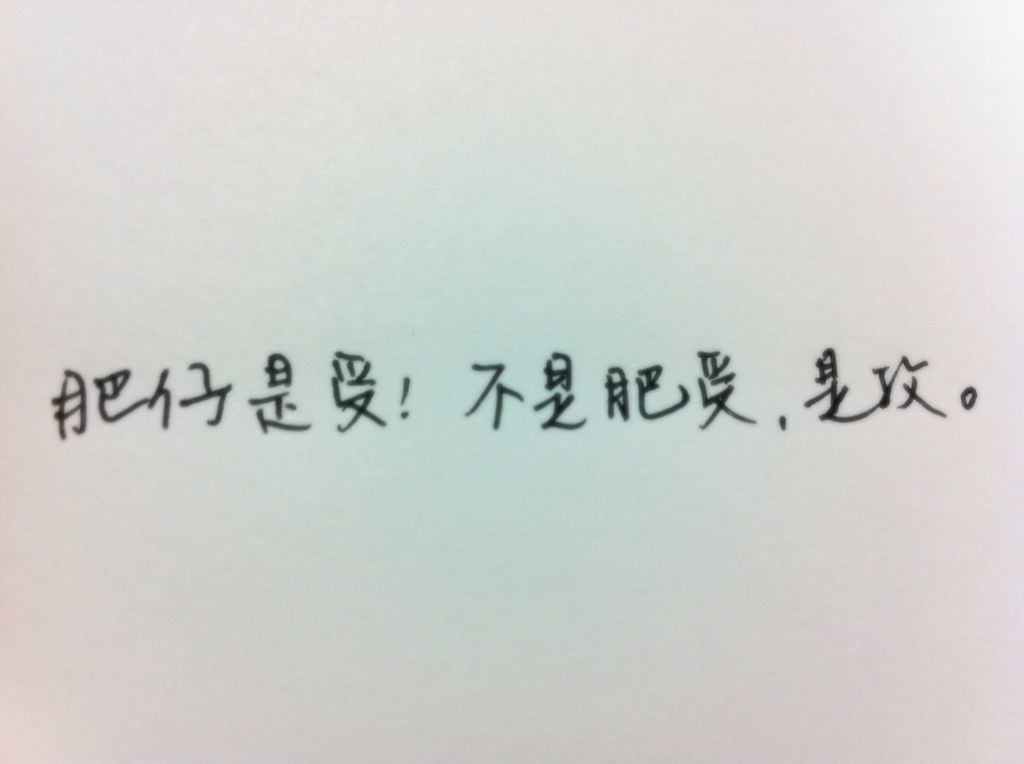 肥仔是受！不是肥受，是攻。